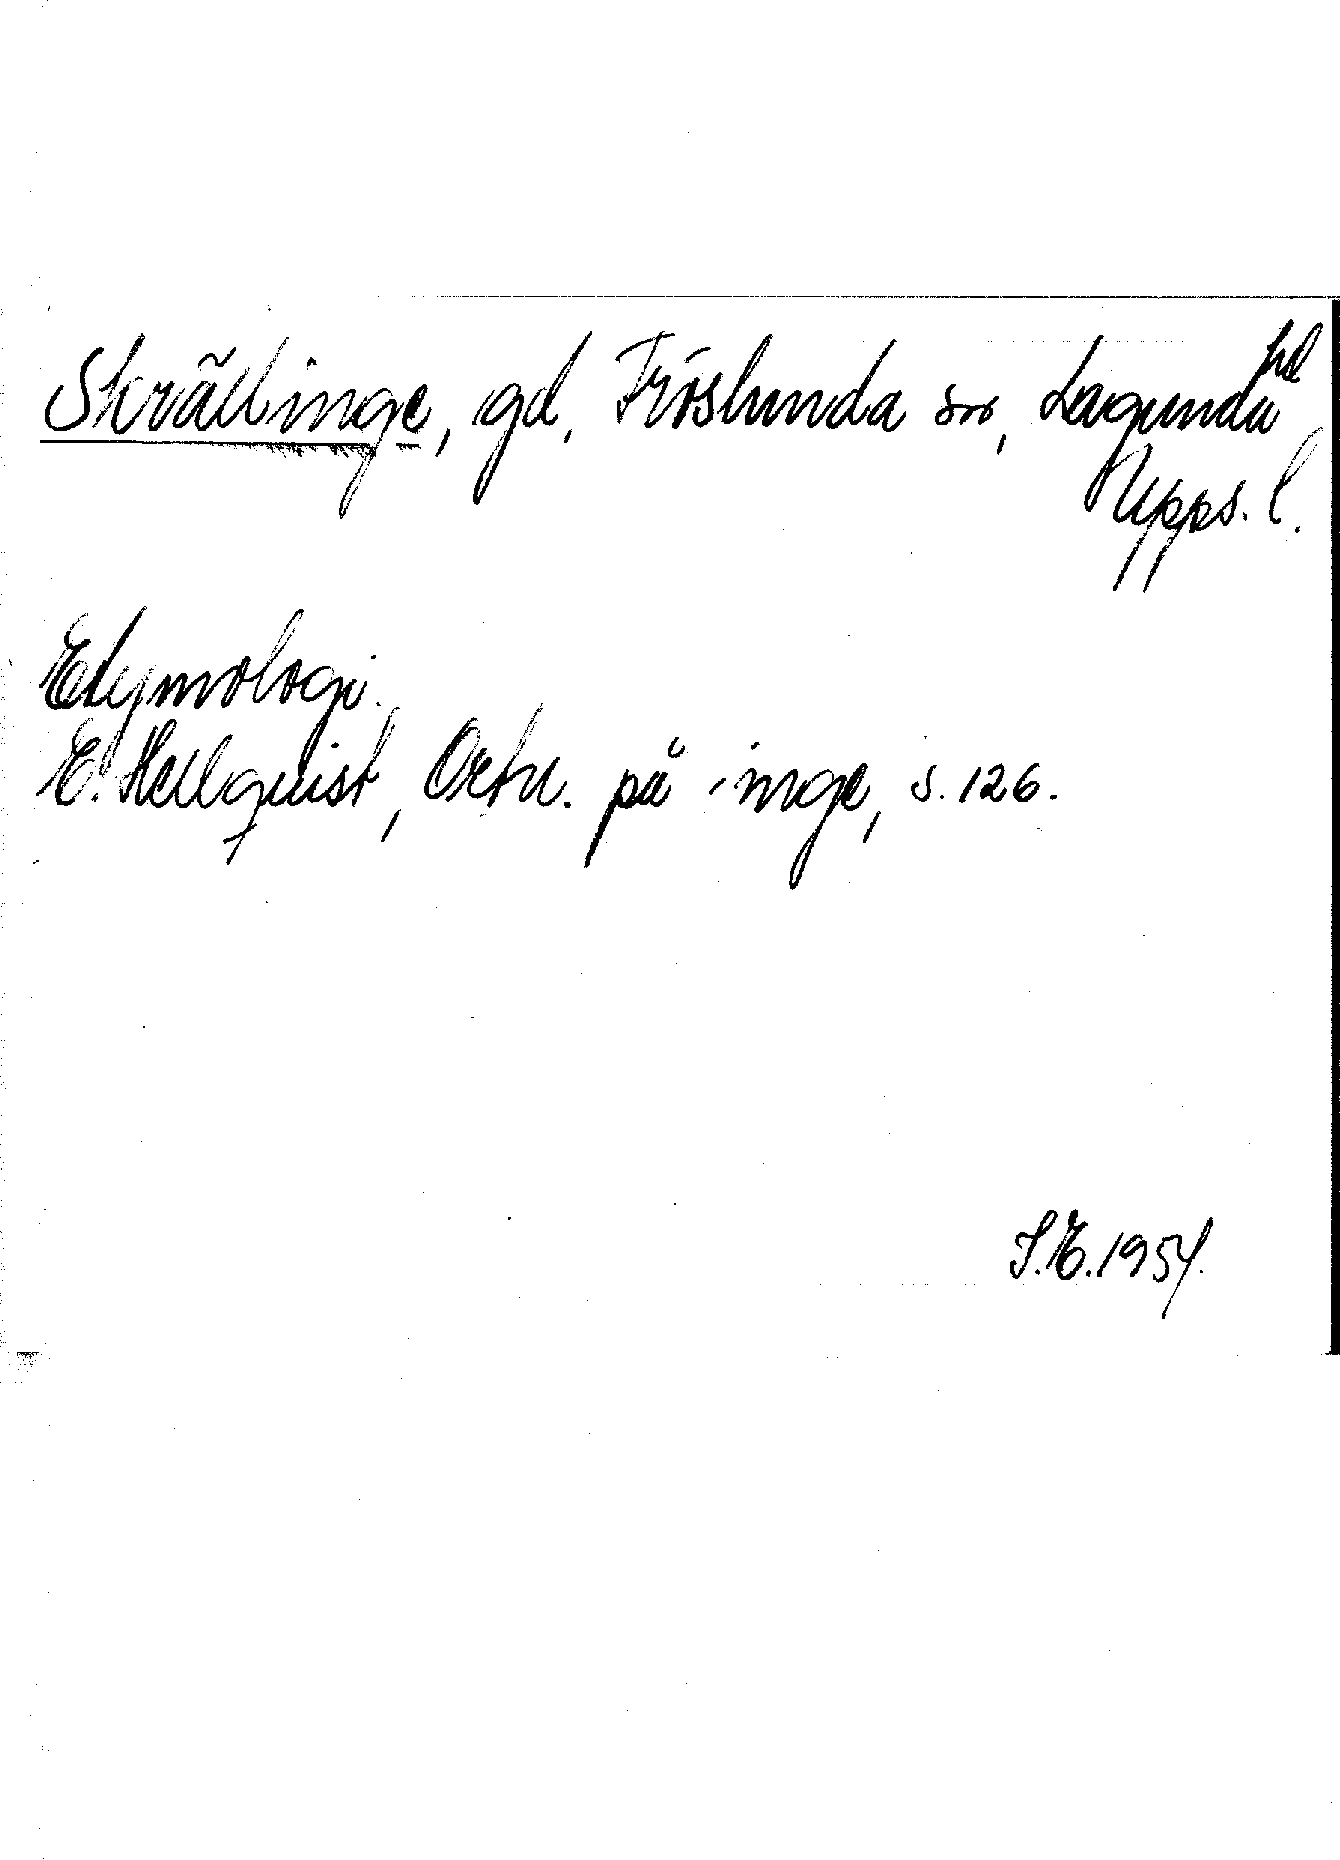 Skrällinge, gd, Fröslunda sn, Lagunda hd,
Upps. l.
Etymologi.
E. Hellquist, Ortn. på -inge, s. 126.
S.E. 1954.